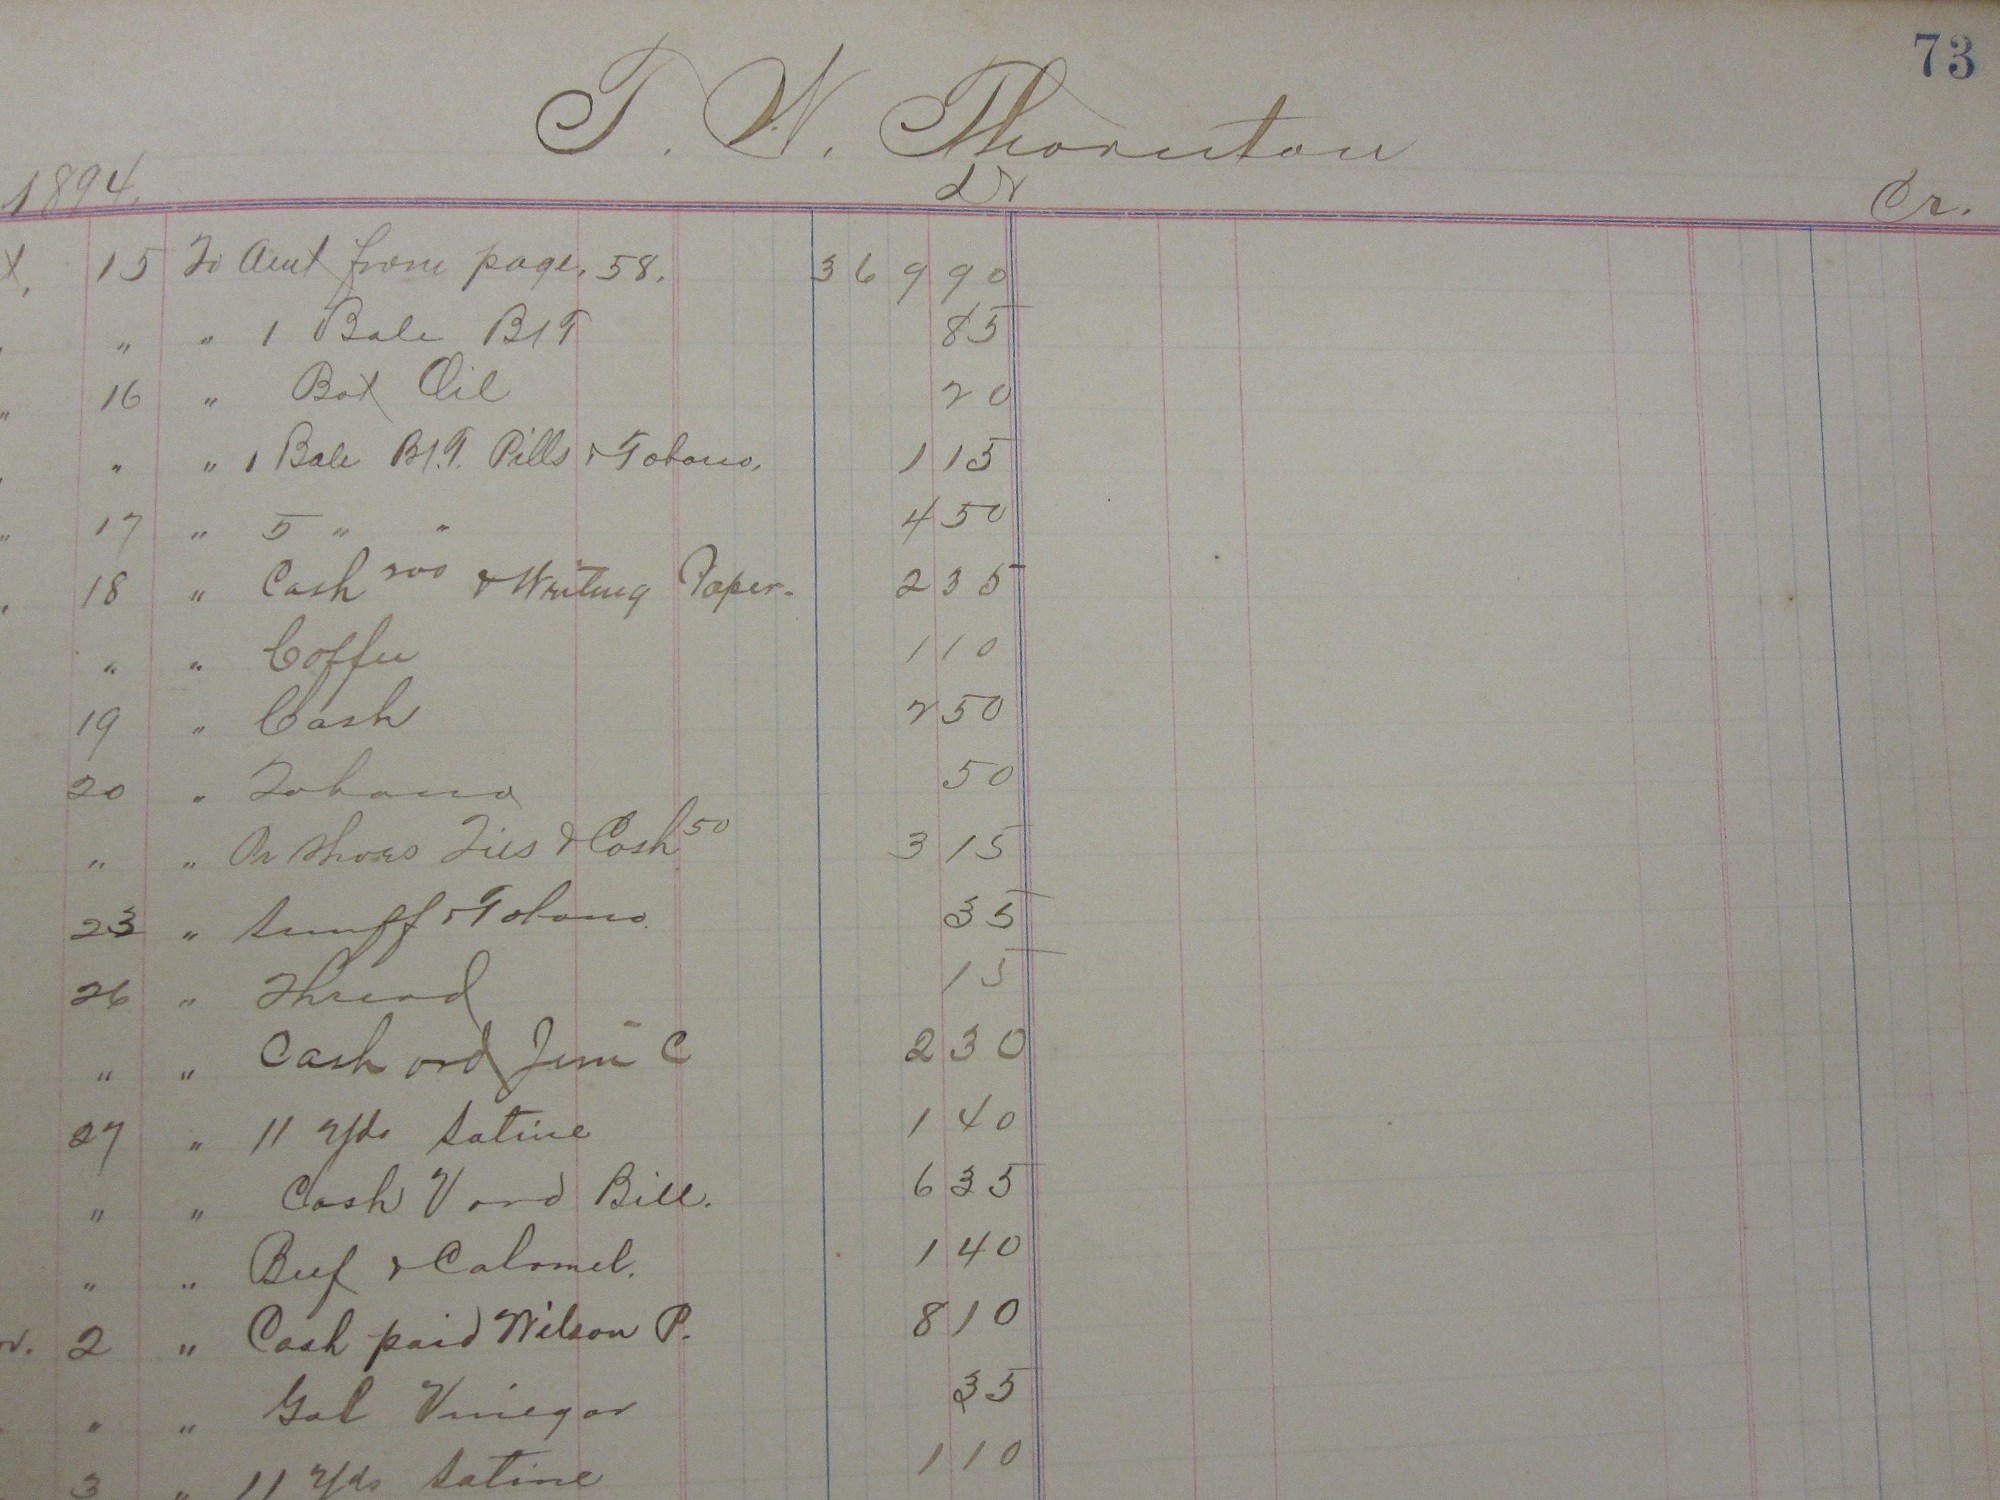 73
T. W. Thornton
1894. Dr Cr.
t. 15 To Amt from page, 58. 369 90
" " " 1 Bale B&T 85
" 16 " Box Oil 20
" " " 1 Bale B&T. Pills & Tobacco. 1 15
" 17 " 5 " " 4 50
" 18 " Cash 200 & Writing Paper. 2 35
" " Coffee 1 10
19 " Cash 2 50
20 " Tobacco 50
" " Pr Shoes Ties & Cash 50 3 15
23 " Snuff & Tobacco. 35
26 " Thread 15
" " Cash ord Jim C 2 30
27 " 11 Yds Satine 1 40
" " Cash & ord Bill. 6 35
" " Beef & Calomel. 1 40
ov. 2 " Cash paid Wilson P. 8 10
" " Gal Vinegar 35
3 " 11 Yds Satine 1 10